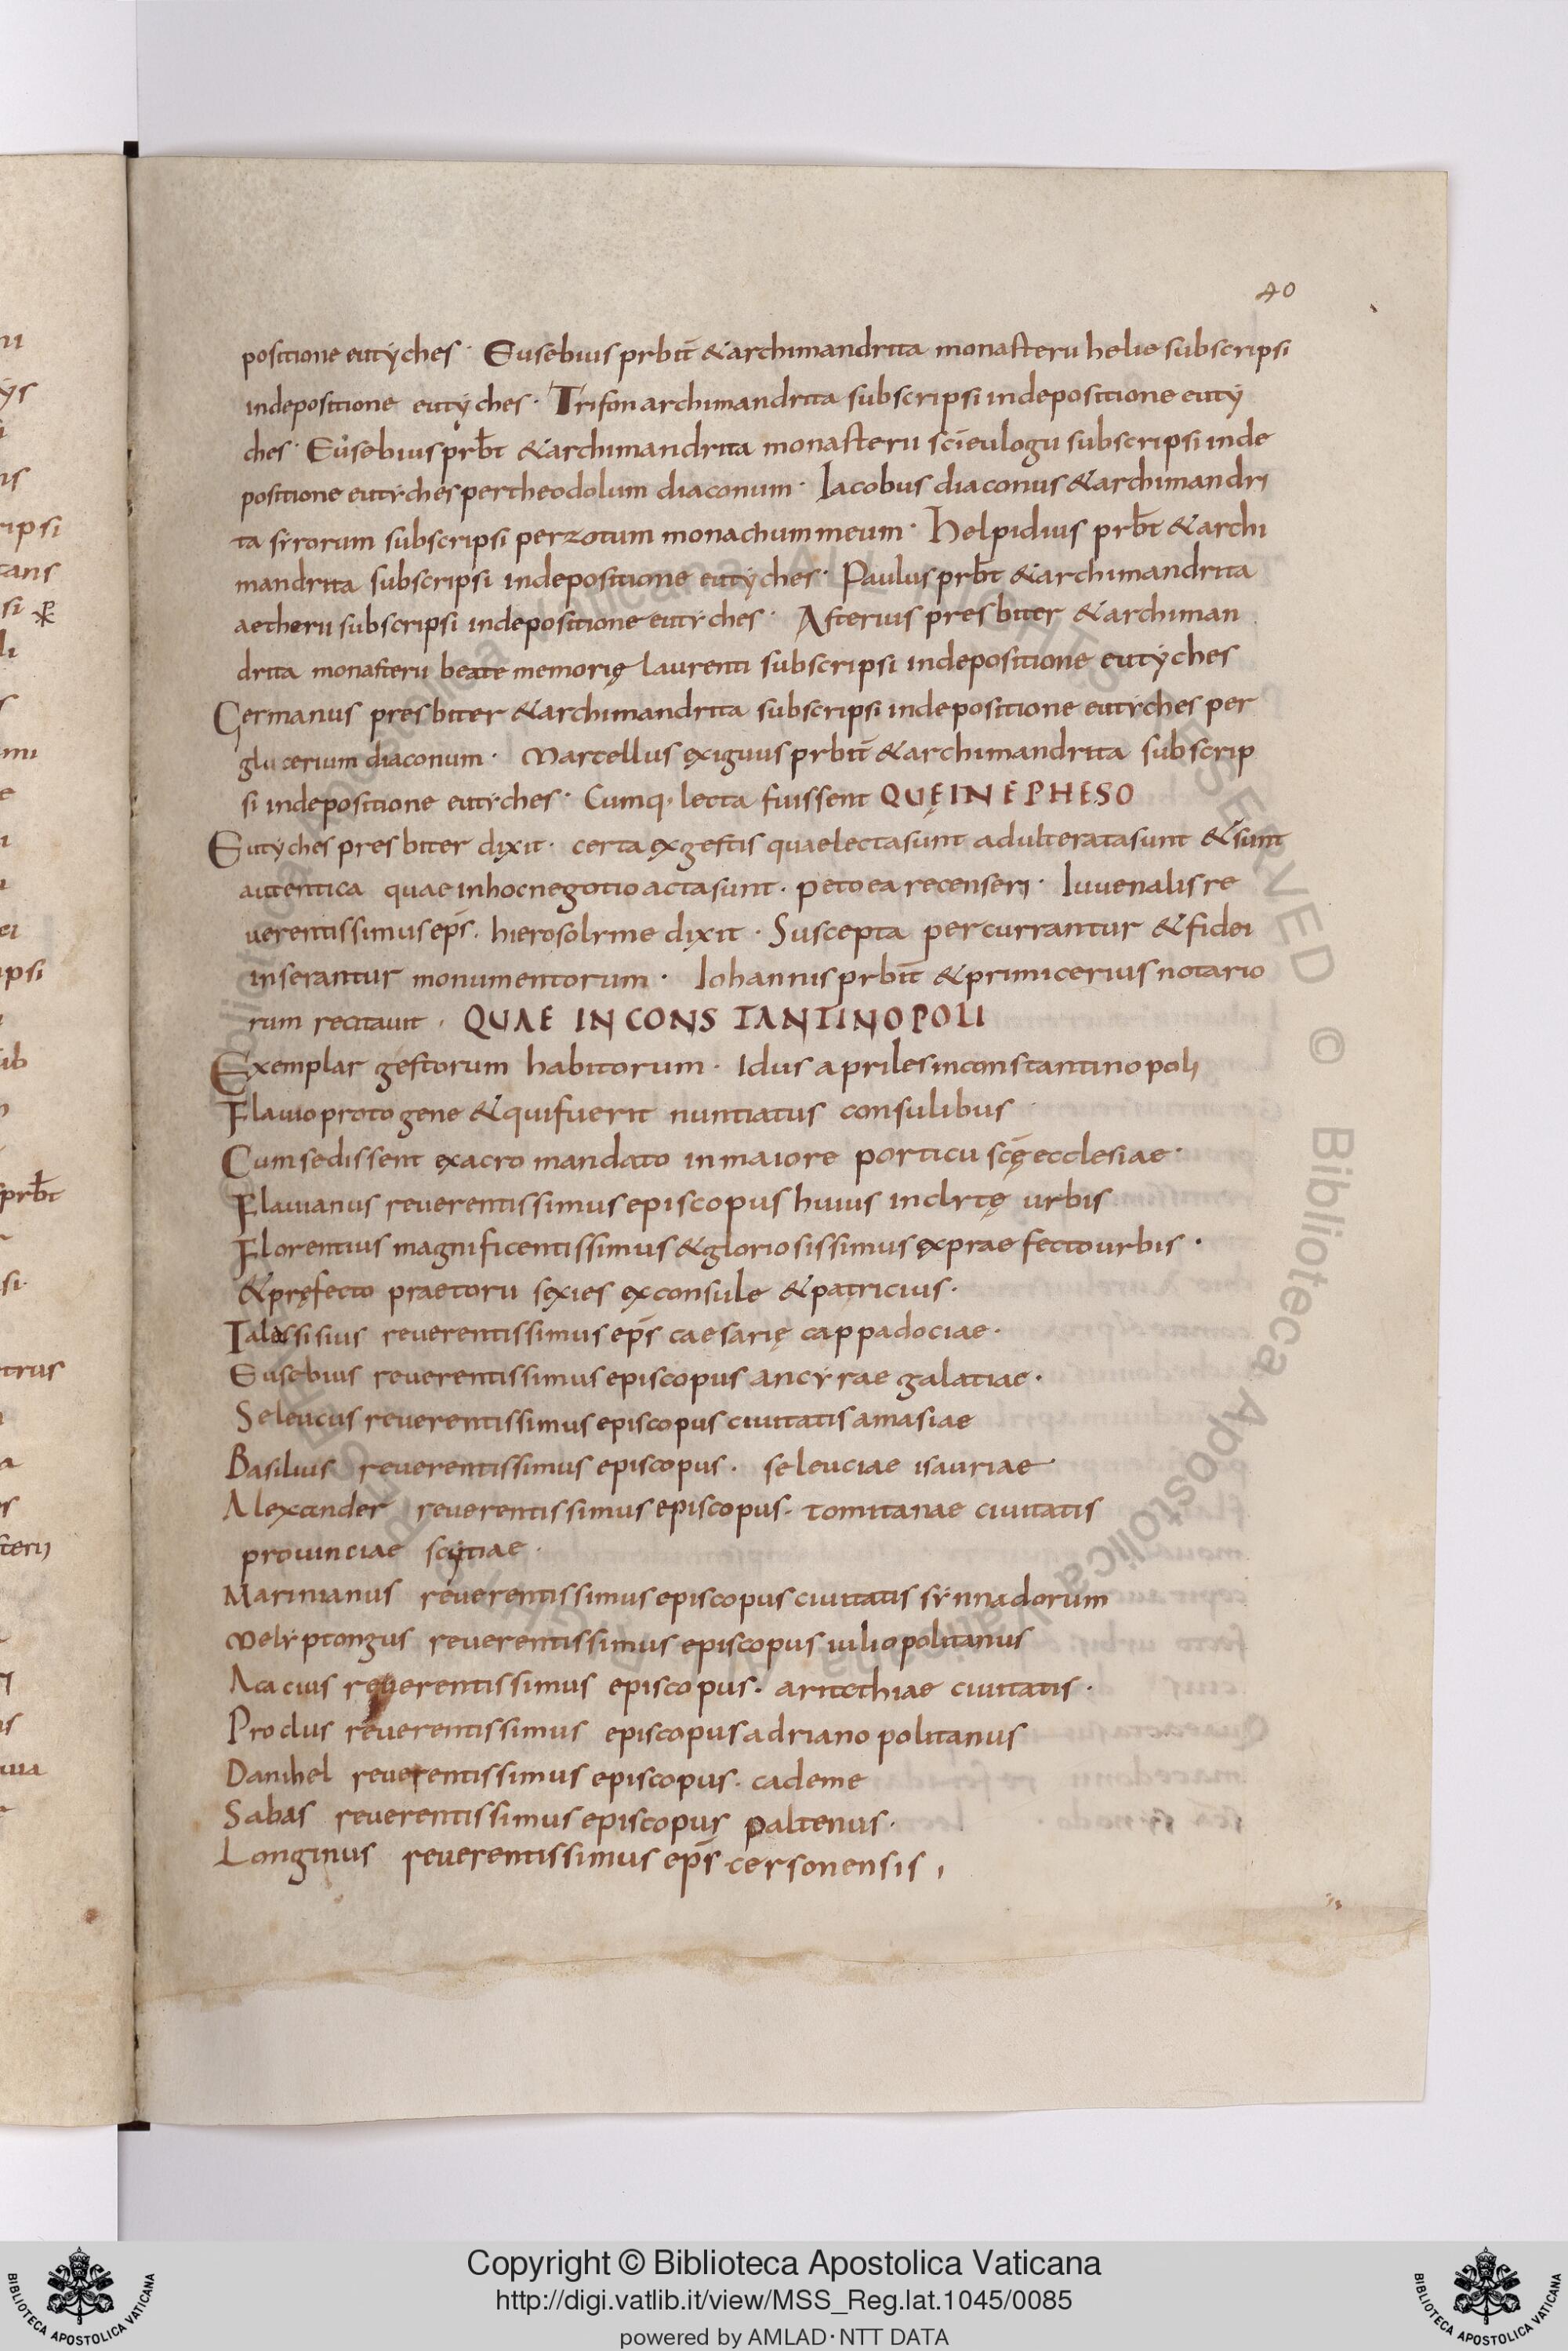 40
positione eutyches · Eusebius prbit̄ & archimandrita monasterii helie subscripsi
in depositione eutyches · Trifon archimandrita subscripsi in depositione euty
ches · Eusebius prb̄t & archimandrita monasterii sc̄i eulogii subscripsi in de
positione eutyches per theodolum diaconum · Iacobus diaconus & archimandri
ta syrorum subscripsi per zotum monachum meum · Helpidius prb̄t & archi
mandrita subscripsi in depositione eutyches · Paulus prb̄t & archimandrita
aetherii subscripsi in depositione eutyches · Asterius presbiter & archiman
drita monasterii beate memorię laurenti subscripsi in depositione eutyches
Germanus presbiter & archimandrita subscripsi in depositione eutyches per
glu cerium diaconum · Marcellus exiguus prbit̄ & archimandrita subscrip
si in depositione eutyches · Cumq· lecta fuissent QUĘ IN EPHESO
Eutyches presbiter dixit · certa ex gestis quae lecta sunt adulterata sunt & sunt
autentica quae in hoc negotio acta sunt · peto ea recenseri · Iuuenalis re
uerentissimus ep̄s · hierosolyme dixit · Suscepta percurrantur & fidei
inserantur monumentorum · Iohannis prbit̄ & primicerius notario
rum recitauit · QUAE IN CONSTANTINOPOLI
Exemplar gestorum habitorum · Idus apriles in constantinopoli
Flauio protogene & qui fuerit nuntiatus consulibus
Cum sedissent ex acro mandato in maiore porticu sc̄ę ecclesiae ·
Flauianus reuerentissimus episcopus huius inclytę urbis
Florentius magnificentissimus & gloriosissimus ex praefecto urbis ·
& pręfecto praetorii sexies ex consule & patricius ·
Talassisius reuerentissimus ep̄s caesarię cappadociae ·
Eusebius reuerentissimus episcopus ancyrae galatiae ·
Seleucus reuerentissimus episcopus ciuitatis amasiae
Basilius reuerentissimus episcopus · seleuciae isauriae
Alexander reuerentissimus episcopus · tomitanae ciuitatis
prouinciae scytiae ·
Marinianus reuerentissimus episcopus ciuitatis synnadorum
Melyptongus reuerentissimus episcopus iuliopolitanus
Acacius reuerentissimus episcopus · aritothiae ciuitatis ·
Proclus reuerentissimus episcopus adrianopolitanus
Danihel reuerentissimus episcopus · cademe
Sabas reuerentissimus episcopus paltenus ·
Longinus reuerentissimus ep̄s cersonensis ,
Copyright © Biblioteca Apostolica Vaticana
http://digi.vatlib.it/view/MSS_Reg.lat.1045/0085
powered by AMLAD · NTT DATA
BIBLIOTECA APOSTOLICA VATICANA
BIBLIOTECA APOSTOLICA VATICANA